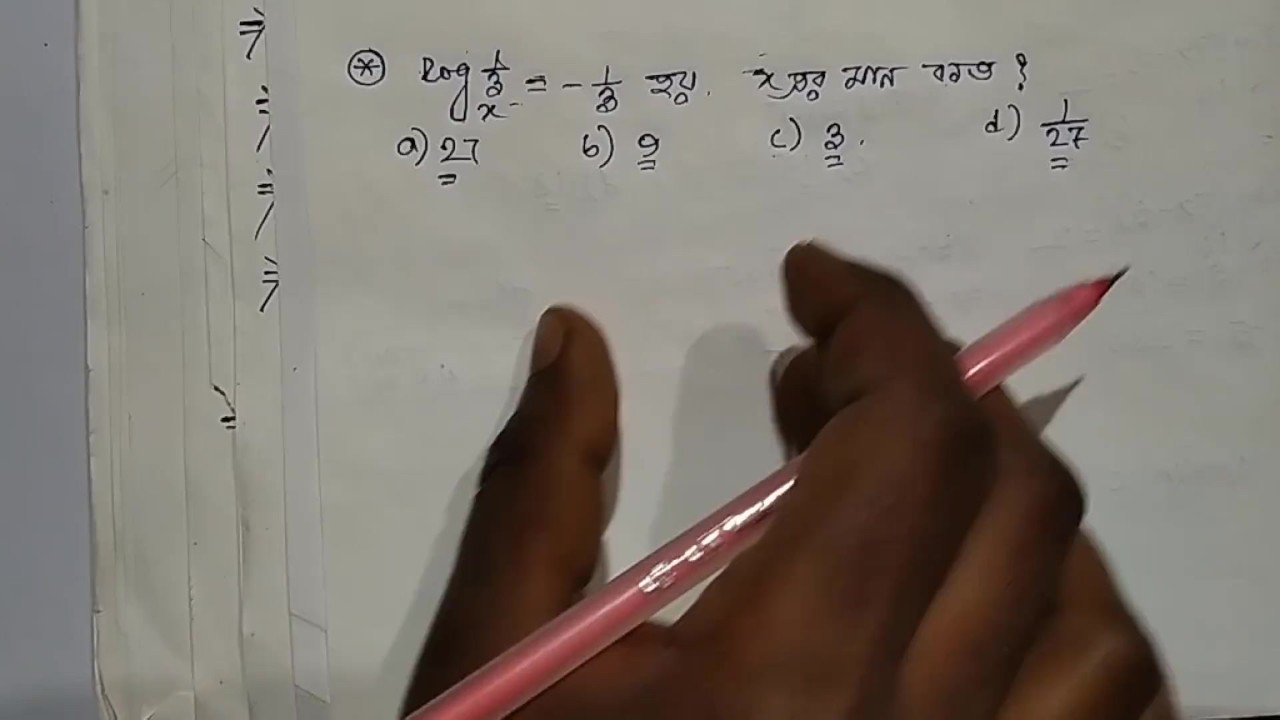 ⊛ log_x 1/3 = -1/3 হয়. x এর মান কত ?
a) 27 b) 9 c) 3. d) 1/27